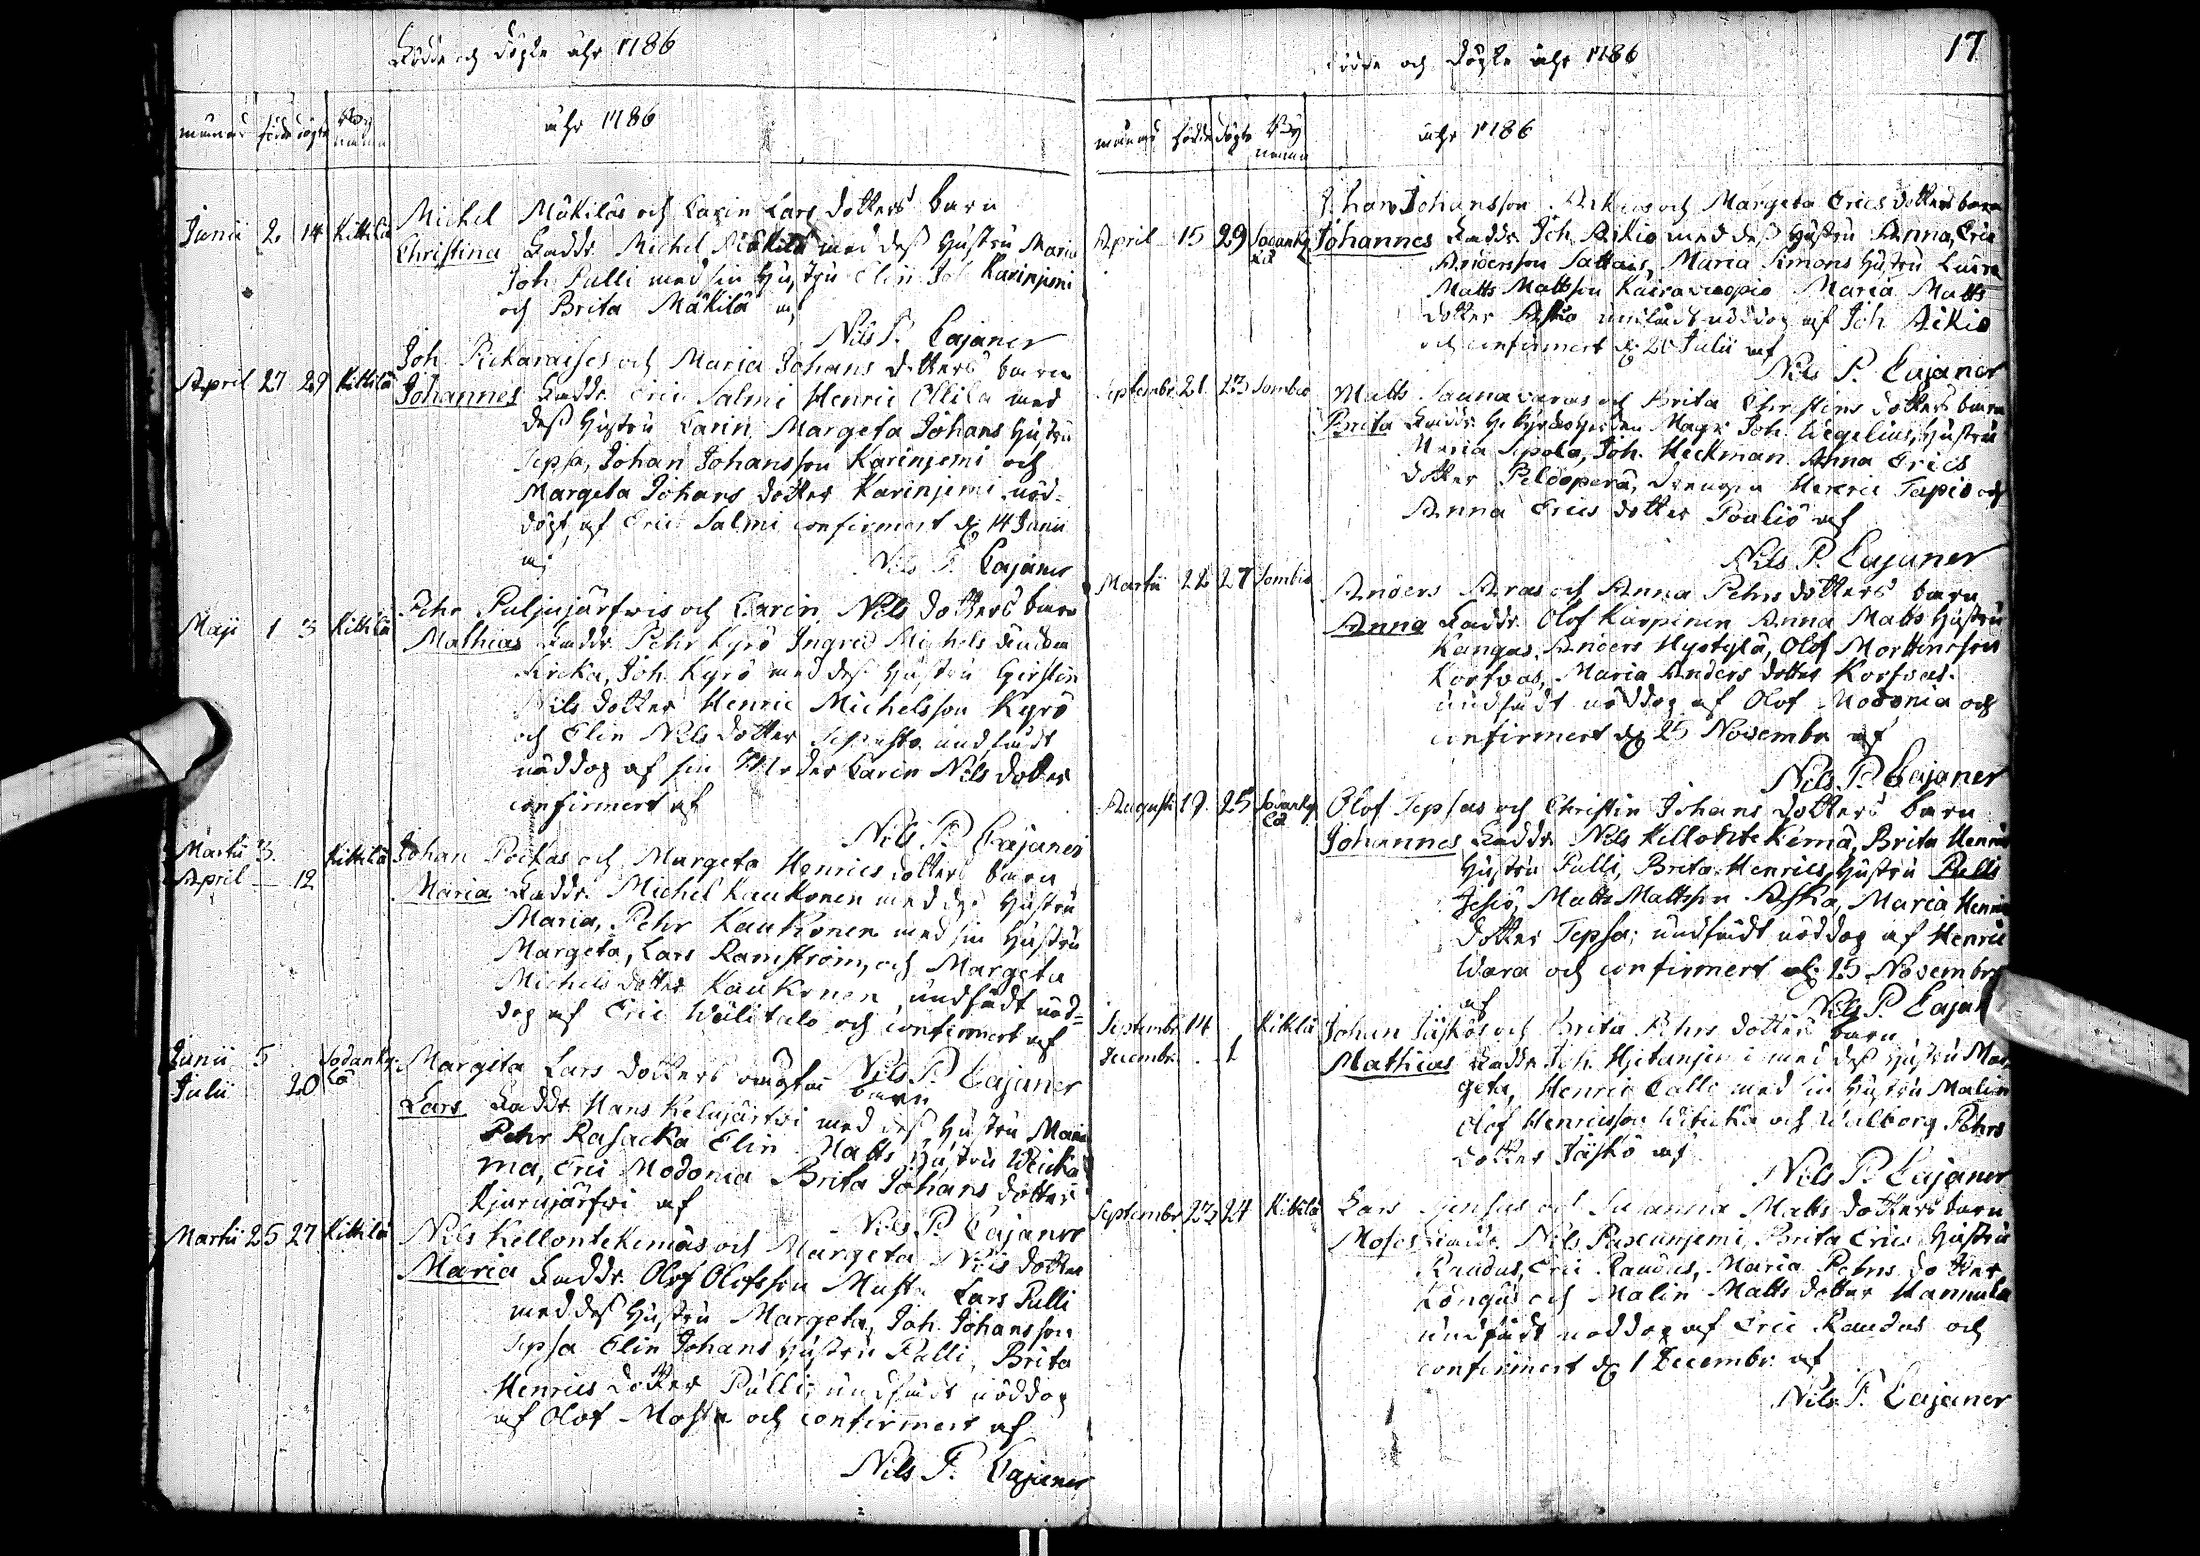 Födde och döpte åhr 1786
månad födde döpte By namn
åhr 1786
Michel Mäkiläs och Carin Lars dotters barn
Junii 2 14 Kittilä
Christina Faddr. Michel Mäkilä med deß Hustru Maria
Joh Pulli med sin Hustru Elin Joh Karinjemi
och Brita Mäkilä af
Nils P. Cajaner
Joh och Maria Johans dotters barn
April 27 29 Kittilä
Johannes Faddr. Eric Salmi Henric Ollila med
deß Hustru Carin Margeta Johans Hustru
Tepsa, Johan Johansson Karinjemi och
Margeta Johans dotter Karinjemi nöd-
döpt af Eric Salmi confirmert d. 14 Junii
af
Nils P. Cajaner
Pehr Puljujärfvis och Carin Nils dotters barn
Maji 1 3 Kittilä
Mathias Faddr. Pehr Kyrö Ingred Michels
Joh. Kyrö med deß Hustru Girstin
Nils dotter Henric Michelsson Kyrö
och Elin Nils dotter undfådt
nöddop af sin Moder Carin Nils dotter
confirmert af
Nils P. Cajaner
Martii 3 Kittilä
April — 12
Johan Pockas och Margeta Henrics dotters barn
Maria Faddr. Michel Kaukonen med deß Hustru
Maria, Pehr Kaukonen med sin Hustru
Margeta, Lars Ramström, och Margeta
Michels dotter Kaukonen, undfådt nöd-
dop af Eric Wälitalo och confirmert af
Nils P. Cajaner
Junii 5 Sodanky-
Julii 20 lä
Margeta Lars dotters oägta barn
Lars Faddr. Hans Kelujärfvi med deß Hustru Maria
Pehr Rasacka Elin Matts Hustru
ma, Eric Modonia Brita Johans dotter
Kjarujärfvi af
Nils P. Cajaner
Martii 25 27 Kittilä
Nils Kellontekemäs och Margeta Nils dotter
Maria Faddr. Olof Olofsson Musta Lars Pulli
med deß Hustru Margeta, Joh. Johansson
Tepsa Elin Johans Hustru Pulli, Brita
Henrics dotter Pulli, undfådt nöddop
af Olof Mosta och confirmert af
Nils P. Cajaner
Födde och döpte åhr 1786
17
månad födde döpte By namn
åhr 1786
Johan Johansson Aikios och Margeta Erics dotters barn
April 15 29 Sodanky lä
Johannes Faddr. Joh. Aikio med deß Hustru Anna, Eric
Andersson Sattais, Maria Simons Hustru
Matts Mattsson Maria Matts
dotter undfådt nöddop af Joh Aikio
och confirmert d. 20 Julii af
Nils P. Cajaner
Septembr. 21 23 Sombio
Matts Saunavaras och Brita Christins dotters barn
Brita Faddr. Kyrkoherden Mag. Joh. Wegelius, Hustru
Maria Sepola, Joh. Heckman Anna Erics
dotter drengen Henric Tapio och
Anna Erics dotter af
Nils P. Cajaner
Martii 22 27 Sombio
Anders Aras och Anna Pehrs dotters barn
Anna Faddr. Olof Karpinen Anna Matts Hustru
Kangas, Anders Olof Morttinsson
Korfvas, Maria Anders dotter Korfvas.
undfådt nöddop af Olof Modonia och
confirmert d. 25 Novembr. af
Nils P. Cajaner
Augusti 19 25 Sodanky lä
Olof Tepsas och Christin Johans dotters barn
Johannes Faddr. Nils Kellontekemä, Brita Henrics
Hustru Pulli, Brita Henrics Hustru Pulli
Jesiö, Matts Mattsson Aska, Maria Henrics
dotter Tepsa; undfådt nöddop af Henric
Wara och confirmert d. 25 Novembr
af
Nils P. Cajaner
Septembr. 14 Kittilä
Decembr. 1
Johan Jäskös och Brita Pehrs dotters barn
Mathias Faddr. Joh. Hjetanjemi med deß Hustru Mar-
geta, Henric Calle med sin Hustru Malin
Olof Henricsson och Walborg Pehrs
dotter Jäskö af
Nils P. Cajaner
Septembr. 23 24 Kittilä
Lars och Susanna Matts dotters barn
Moses Faddr. Nils Brita Erics Hustru
Raudus, Eric Raudus, Maria Pehrs dotter
och Malin Matts dotter Hannula
undfådt nöddop af Eric Raudus och
confirmert d. 1 Decembr. af
Nils P. Cajaner